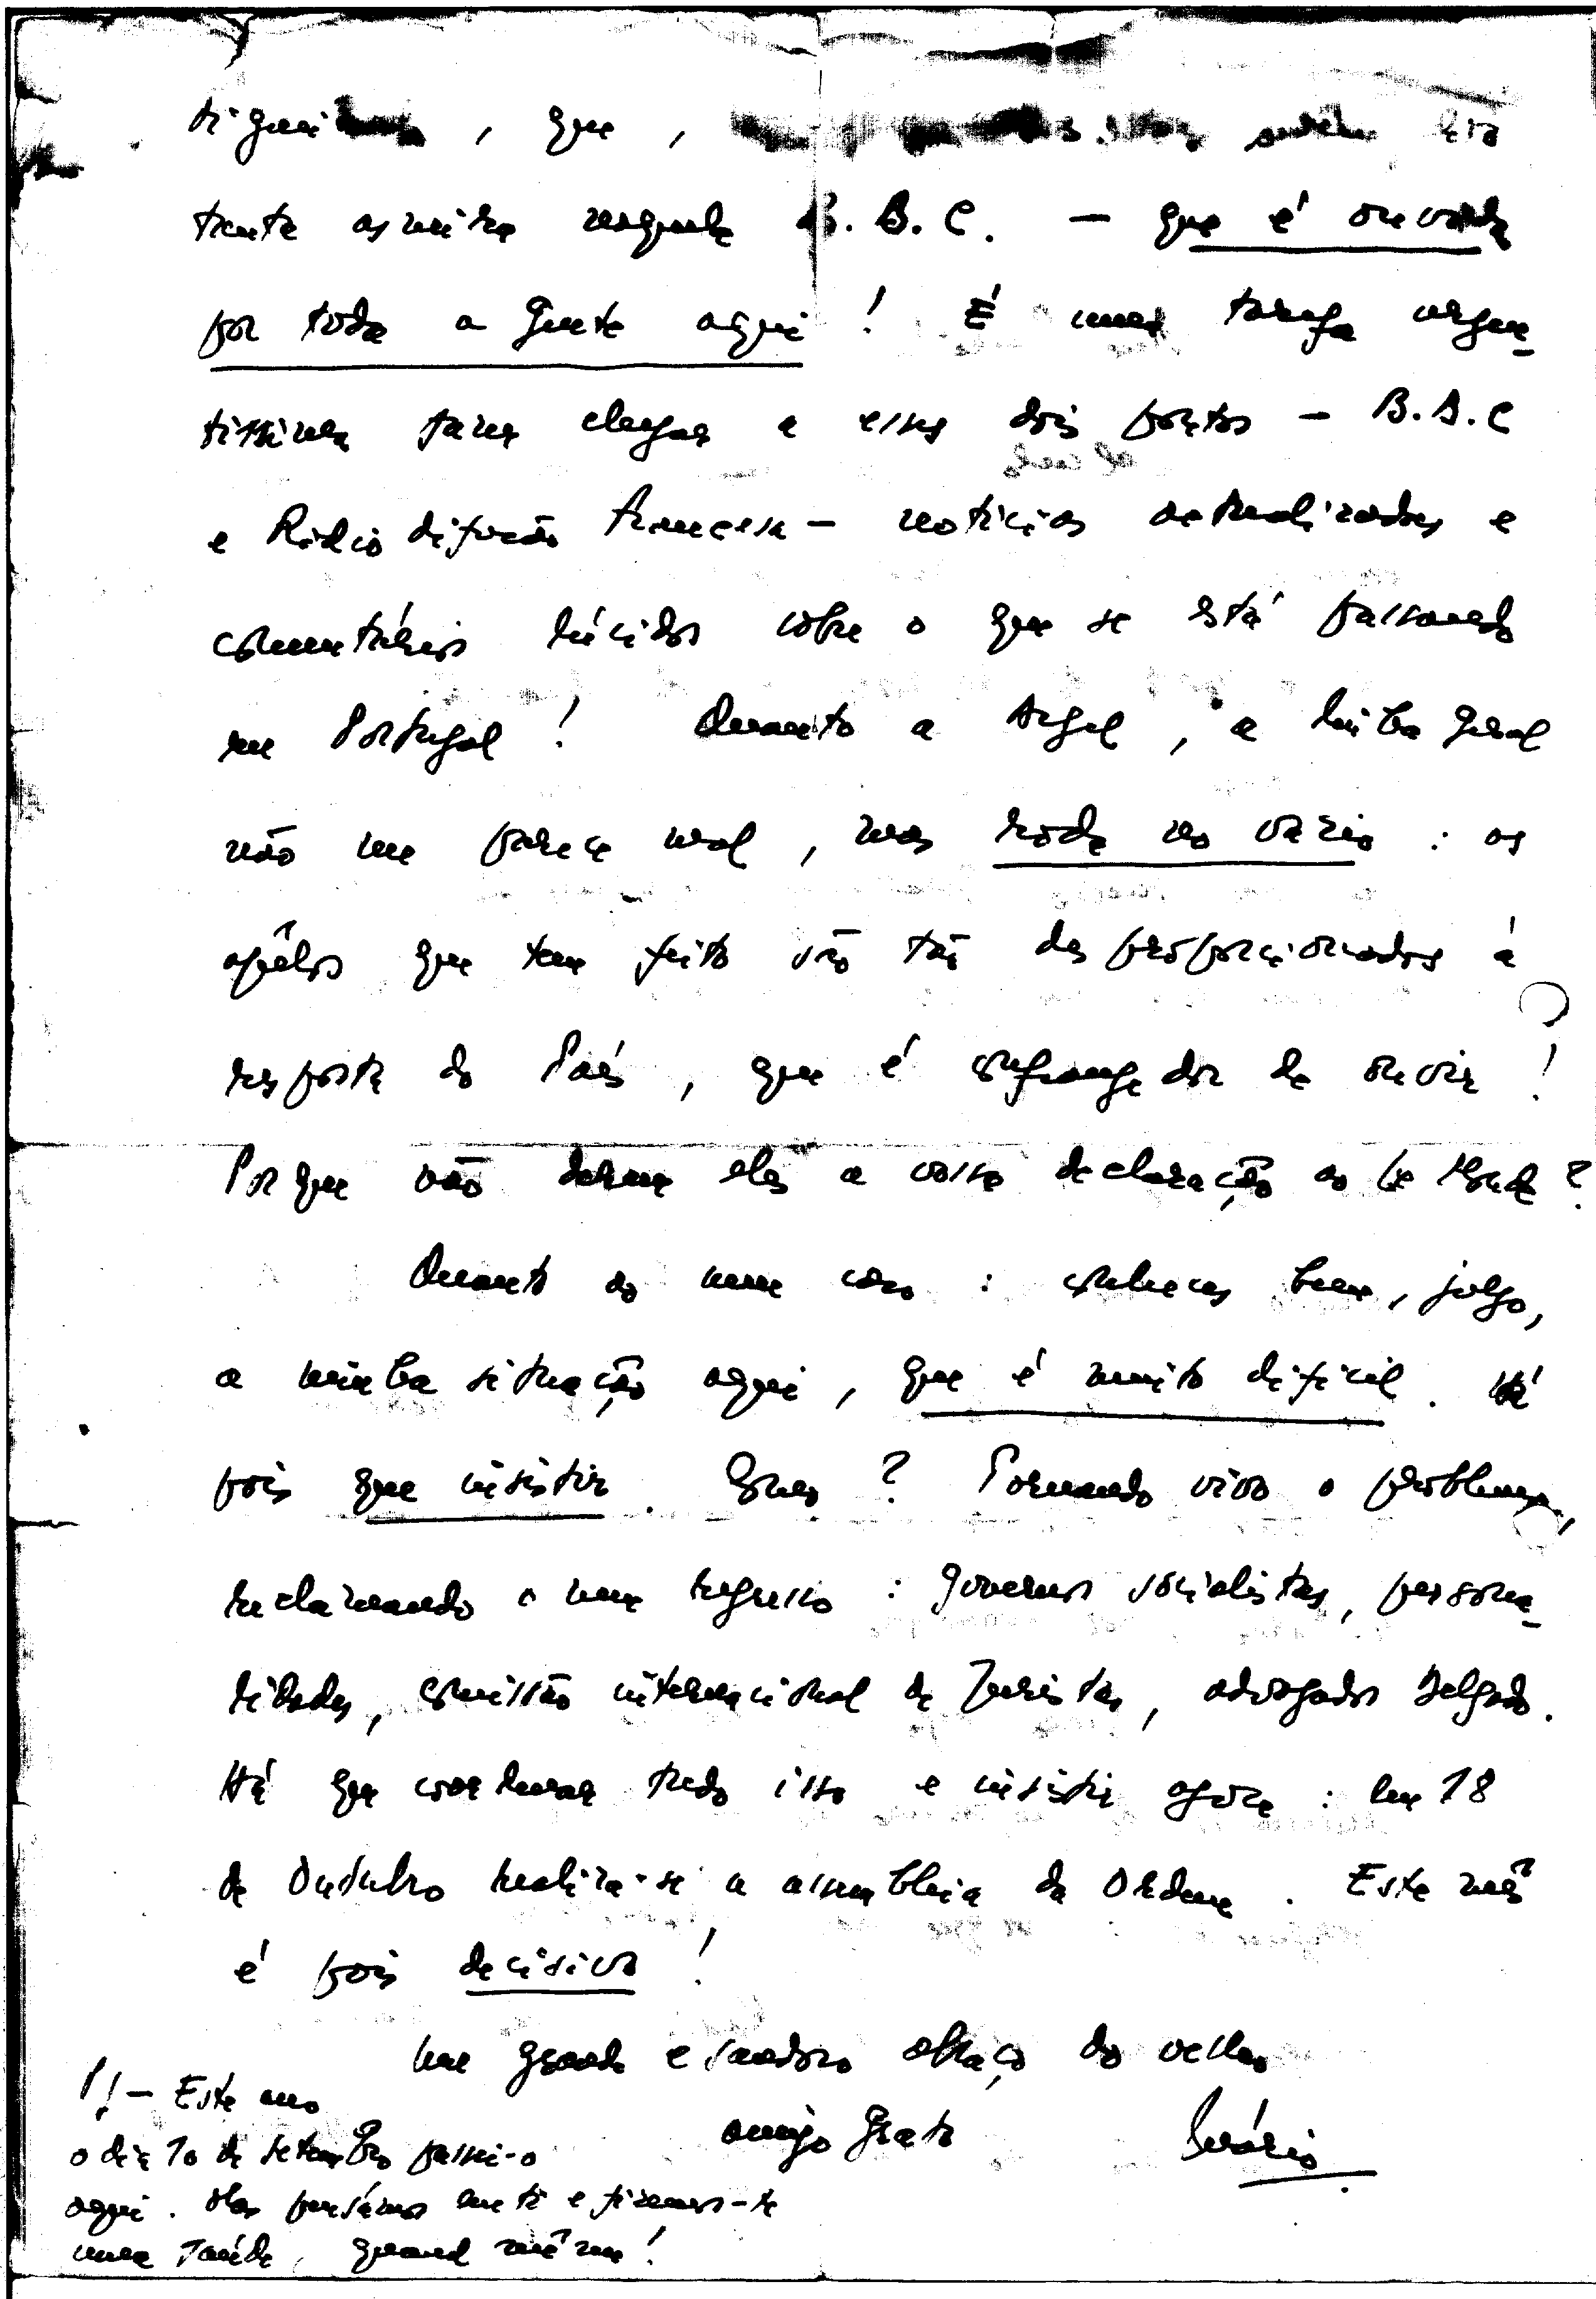 , que,
tente as minha resposta B.B.C. — que é ouvida
por toda a gente aqui! É uma tarefa urgen-
tíssima fazer chegar a esses dois postos — B.B.C
e Rádio difusão francesa — notícias actualizadas e
comentários lúcidos sobre o que se está passando
em Portugal! Quanto a Argel, a linha geral
não me parece mal, mas roda no vazio: os
apêlos que tem feito são tão desproporcionados à
resposta do País, que é confrangedor de ouvir!
Porque não deram eles a vossa declaração ao Le Monde?
Quanto ao meu caso: conheces bem, julgo,
a minha situação aqui, que é muito difícil. Há
pois que insistir. Como? Tornando vivo o problema,
reclamando o meu regresso: governos socialistas, persona-
lidades, comissão internacional de Juristas, advogados Delgado.
Há que coordenar tudo isso e insistir agora: em 18
de Outubro realiza-se a assembleia da Ordem. Este mês
é pois decisivo!
Um grande e saudoso abraço do velho
amigo grato Mário
PS — Este ano
o dia 10 de setembro passei-o
aqui. Mas pensámos em ti e fizemos-te
uma saúde, quand même!